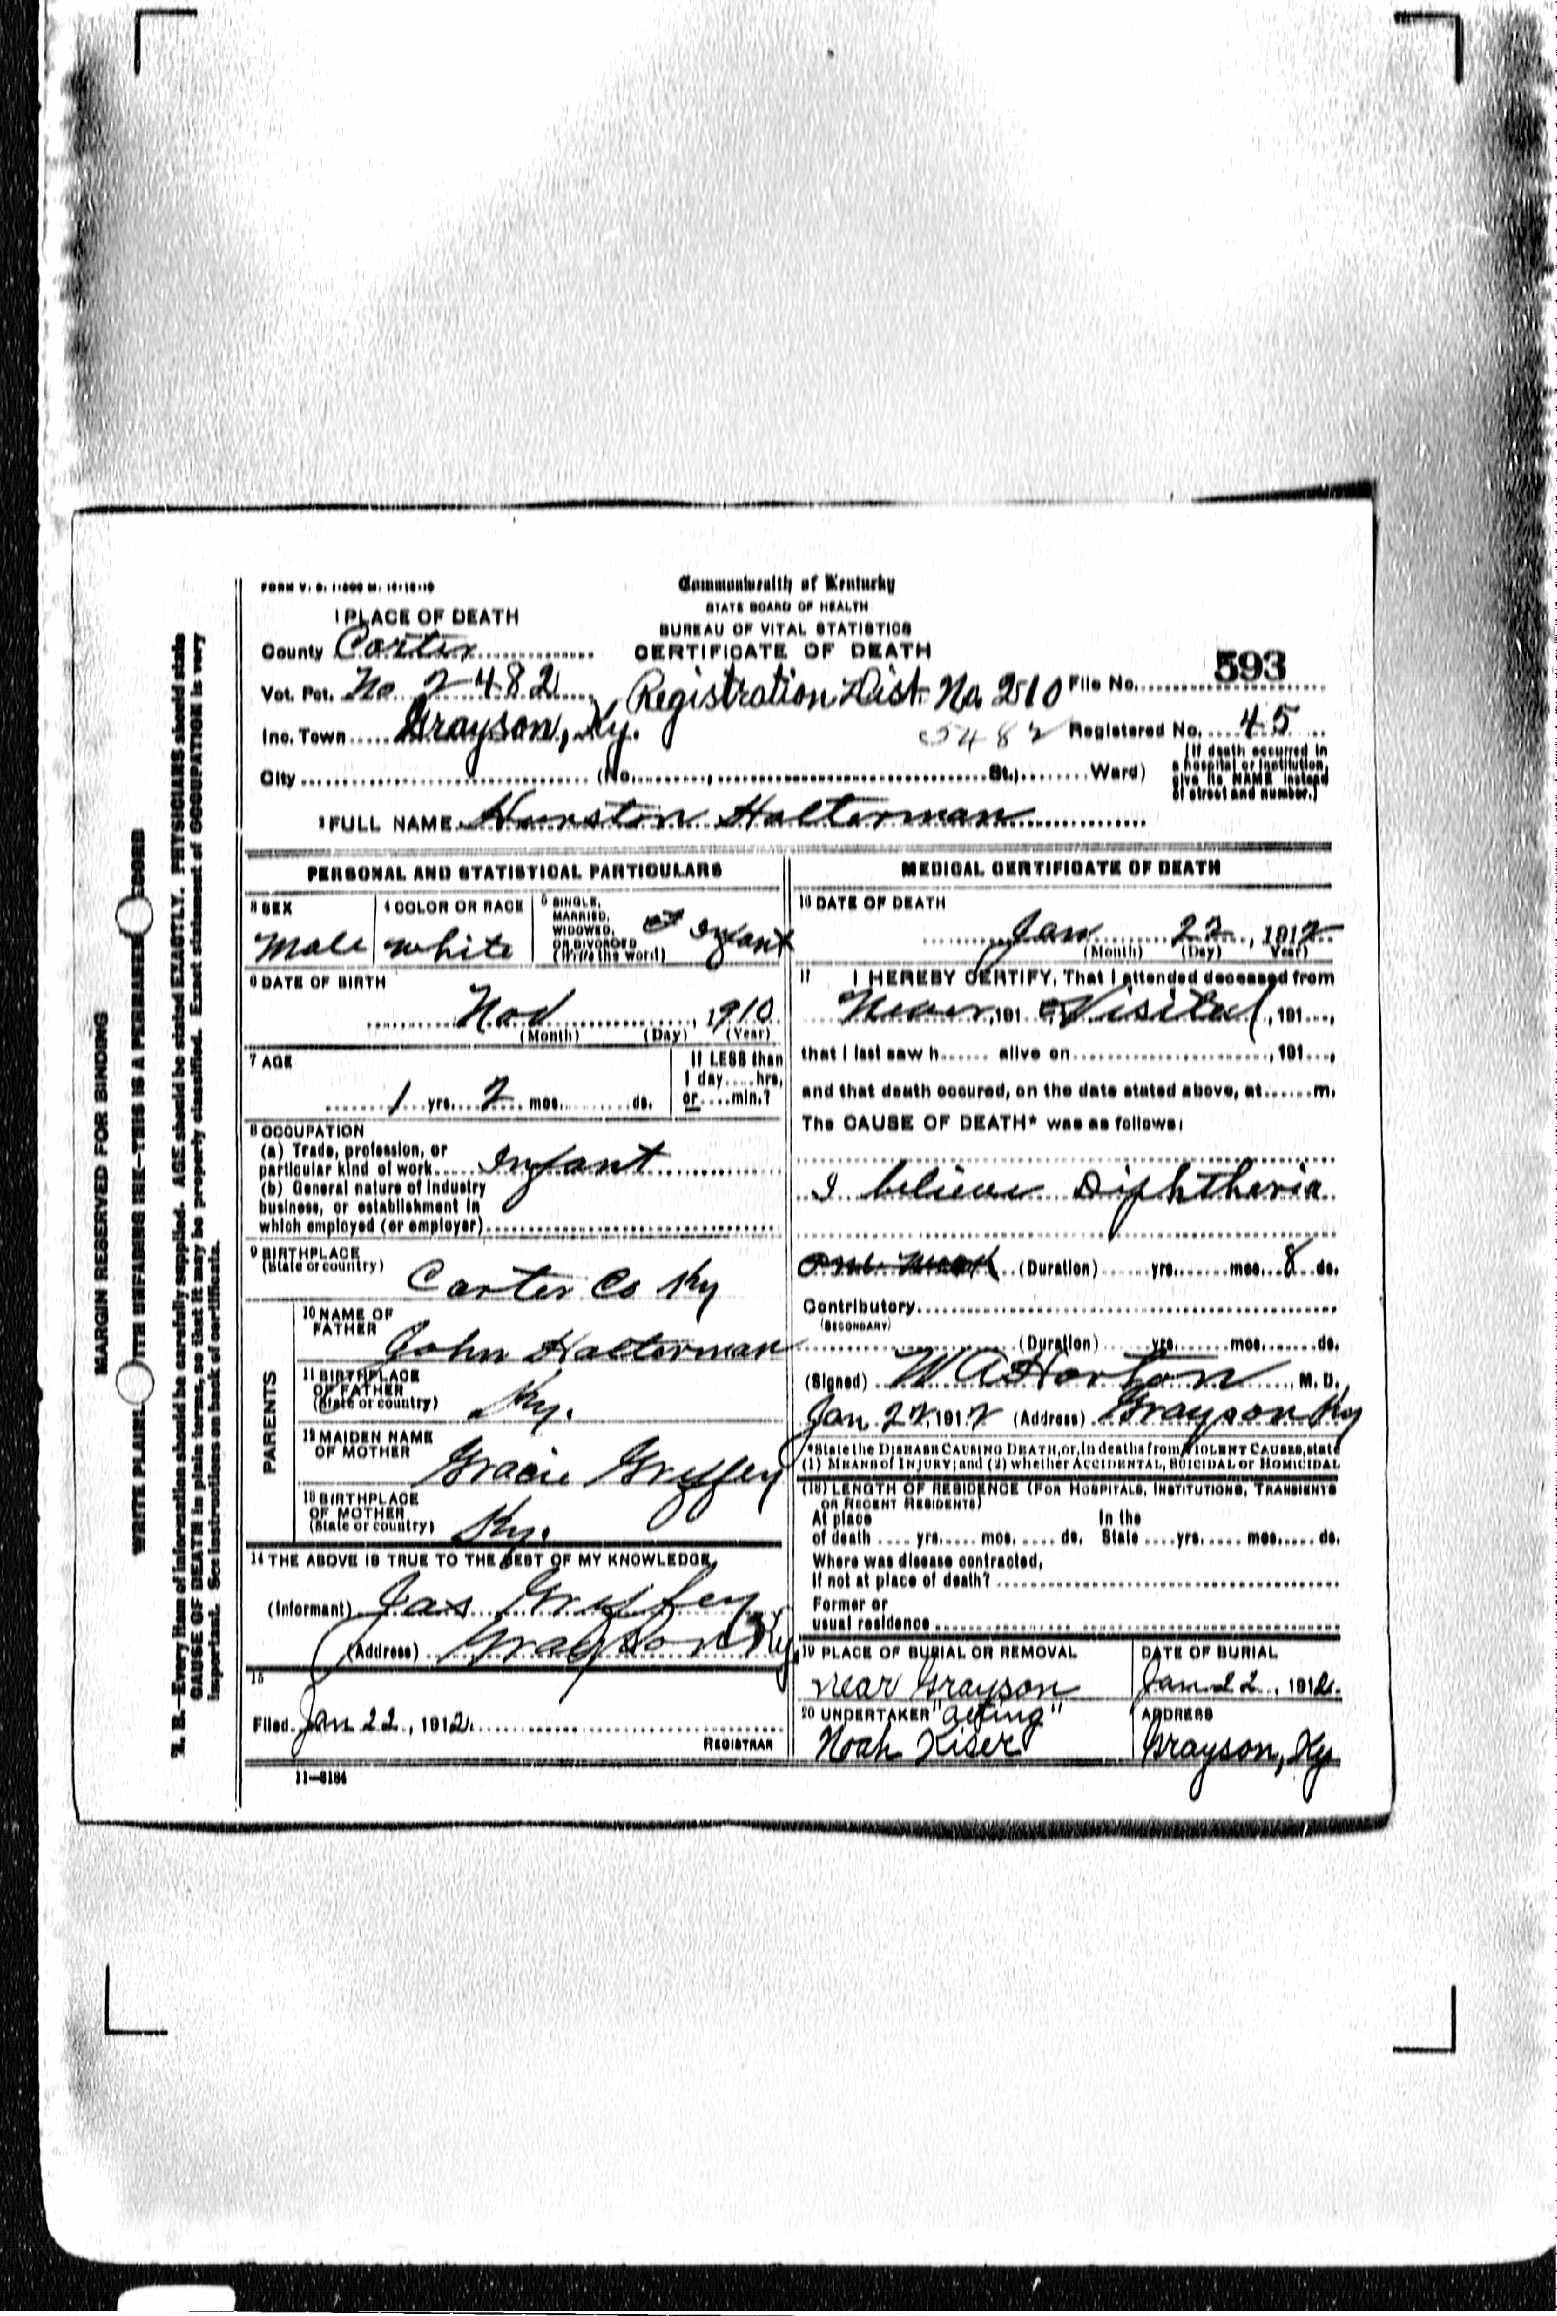 FORM V. S. 1-
Commonwealth of Kentucky
STATE BOARD OF HEALTH
BUREAU OF VITAL STATISTICS
CERTIFICATE OF DEATH
1 PLACE OF DEATH
County Carter
Vot. Pct. No 2482 Registration Dist. No. 210 File No. 593
Inc. Town Grayson, Ky. 5482 Registered No. 45
City (No. , St.; Ward)
(If death occurred in
a hospital or institution,
give its NAME instead
of street and number.)
2 FULL NAME Hurston Halterman
PERSONAL AND STATISTICAL PARTICULARS
3 SEX
Male
4 COLOR OR RACE
white
5 SINGLE,
MARRIED,
WIDOWED,
OR DIVORCED
(Write the word)
Infant
6 DATE OF BIRTH
Nov , 1910
(Month) (Day) (Year)
7 AGE
1 yrs. 2 mos. ds.
If LESS than
1 day hrs,
or min.?
8 OCCUPATION
(a) Trade, profession, or
particular kind of work Infant
(b) General nature of industry
business, or establishment in
which employed (or employer)
9 BIRTHPLACE
(State or country)
Carter Co Ky
PARENTS
10 NAME OF
FATHER
John Halterman
11 BIRTHPLACE
OF FATHER
(State or country)
Ky.
12 MAIDEN NAME
OF MOTHER
Gracie Griffey
13 BIRTHPLACE
OF MOTHER
(State or country)
Ky.
14 THE ABOVE IS TRUE TO THE BEST OF MY KNOWLEDGE,
(Informant) Jas Griffey
(Address) Grayson Ky,
15
Filed Jan 22, 1912
REGISTRAR
11-3184
MEDICAL CERTIFICATE OF DEATH
16 DATE OF DEATH
Jan 22, 1912
(Month) (Day) (Year)
17 I HEREBY CERTIFY, That I attended deceased from
Never, 191 Visited, 191 ,
that I last saw h alive on , 191 ,
and that death occured, on the date stated above, at m.
The CAUSE OF DEATH* was as follows:
I believe Diphtheria
one week (Duration) yrs. mos. 8 ds.
Contributory
(SECONDARY)
(Duration) yrs. mos. ds.
(Signed) W A Horton, M. D.
Jan 22, 1912 (Address) Grayson Ky
*State the DISEASE CAUSING DEATH, or, in deaths from VIOLENT CAUSES, state
(1) MEANS of INJURY; and (2) whether ACCIDENTAL, SUICIDAL or HOMICIDAL
(18) LENGTH OF RESIDENCE (FOR HOSPITALS, INSTITUTIONS, TRANSIENTS
OR RECENT RESIDENTS)
At place In the
of death yrs. mos. ds. State yrs. mos. ds.
Where was disease contracted,
If not at place of death?
Former or
usual residence
19 PLACE OF BURIAL OR REMOVAL
near Grayson
DATE OF BURIAL
Jan 22, 1912.
20 UNDERTAKER "acting"
Noah Kiser
ADDRESS
Grayson, Ky
MARGIN RESERVED FOR BINDING
WRITE PLAINL ITE UNFADING INK—THIS IS A PERMANEN ECORD
N. B.—Every item of information should be carefully supplied. AGE should be stated EXACTLY. PHYSICIANS should state
CAUSE OF DEATH in plain terms, so that it may be properly classified. Exact statement of OCCUPATION is very
important. See instructions on back of certificate.